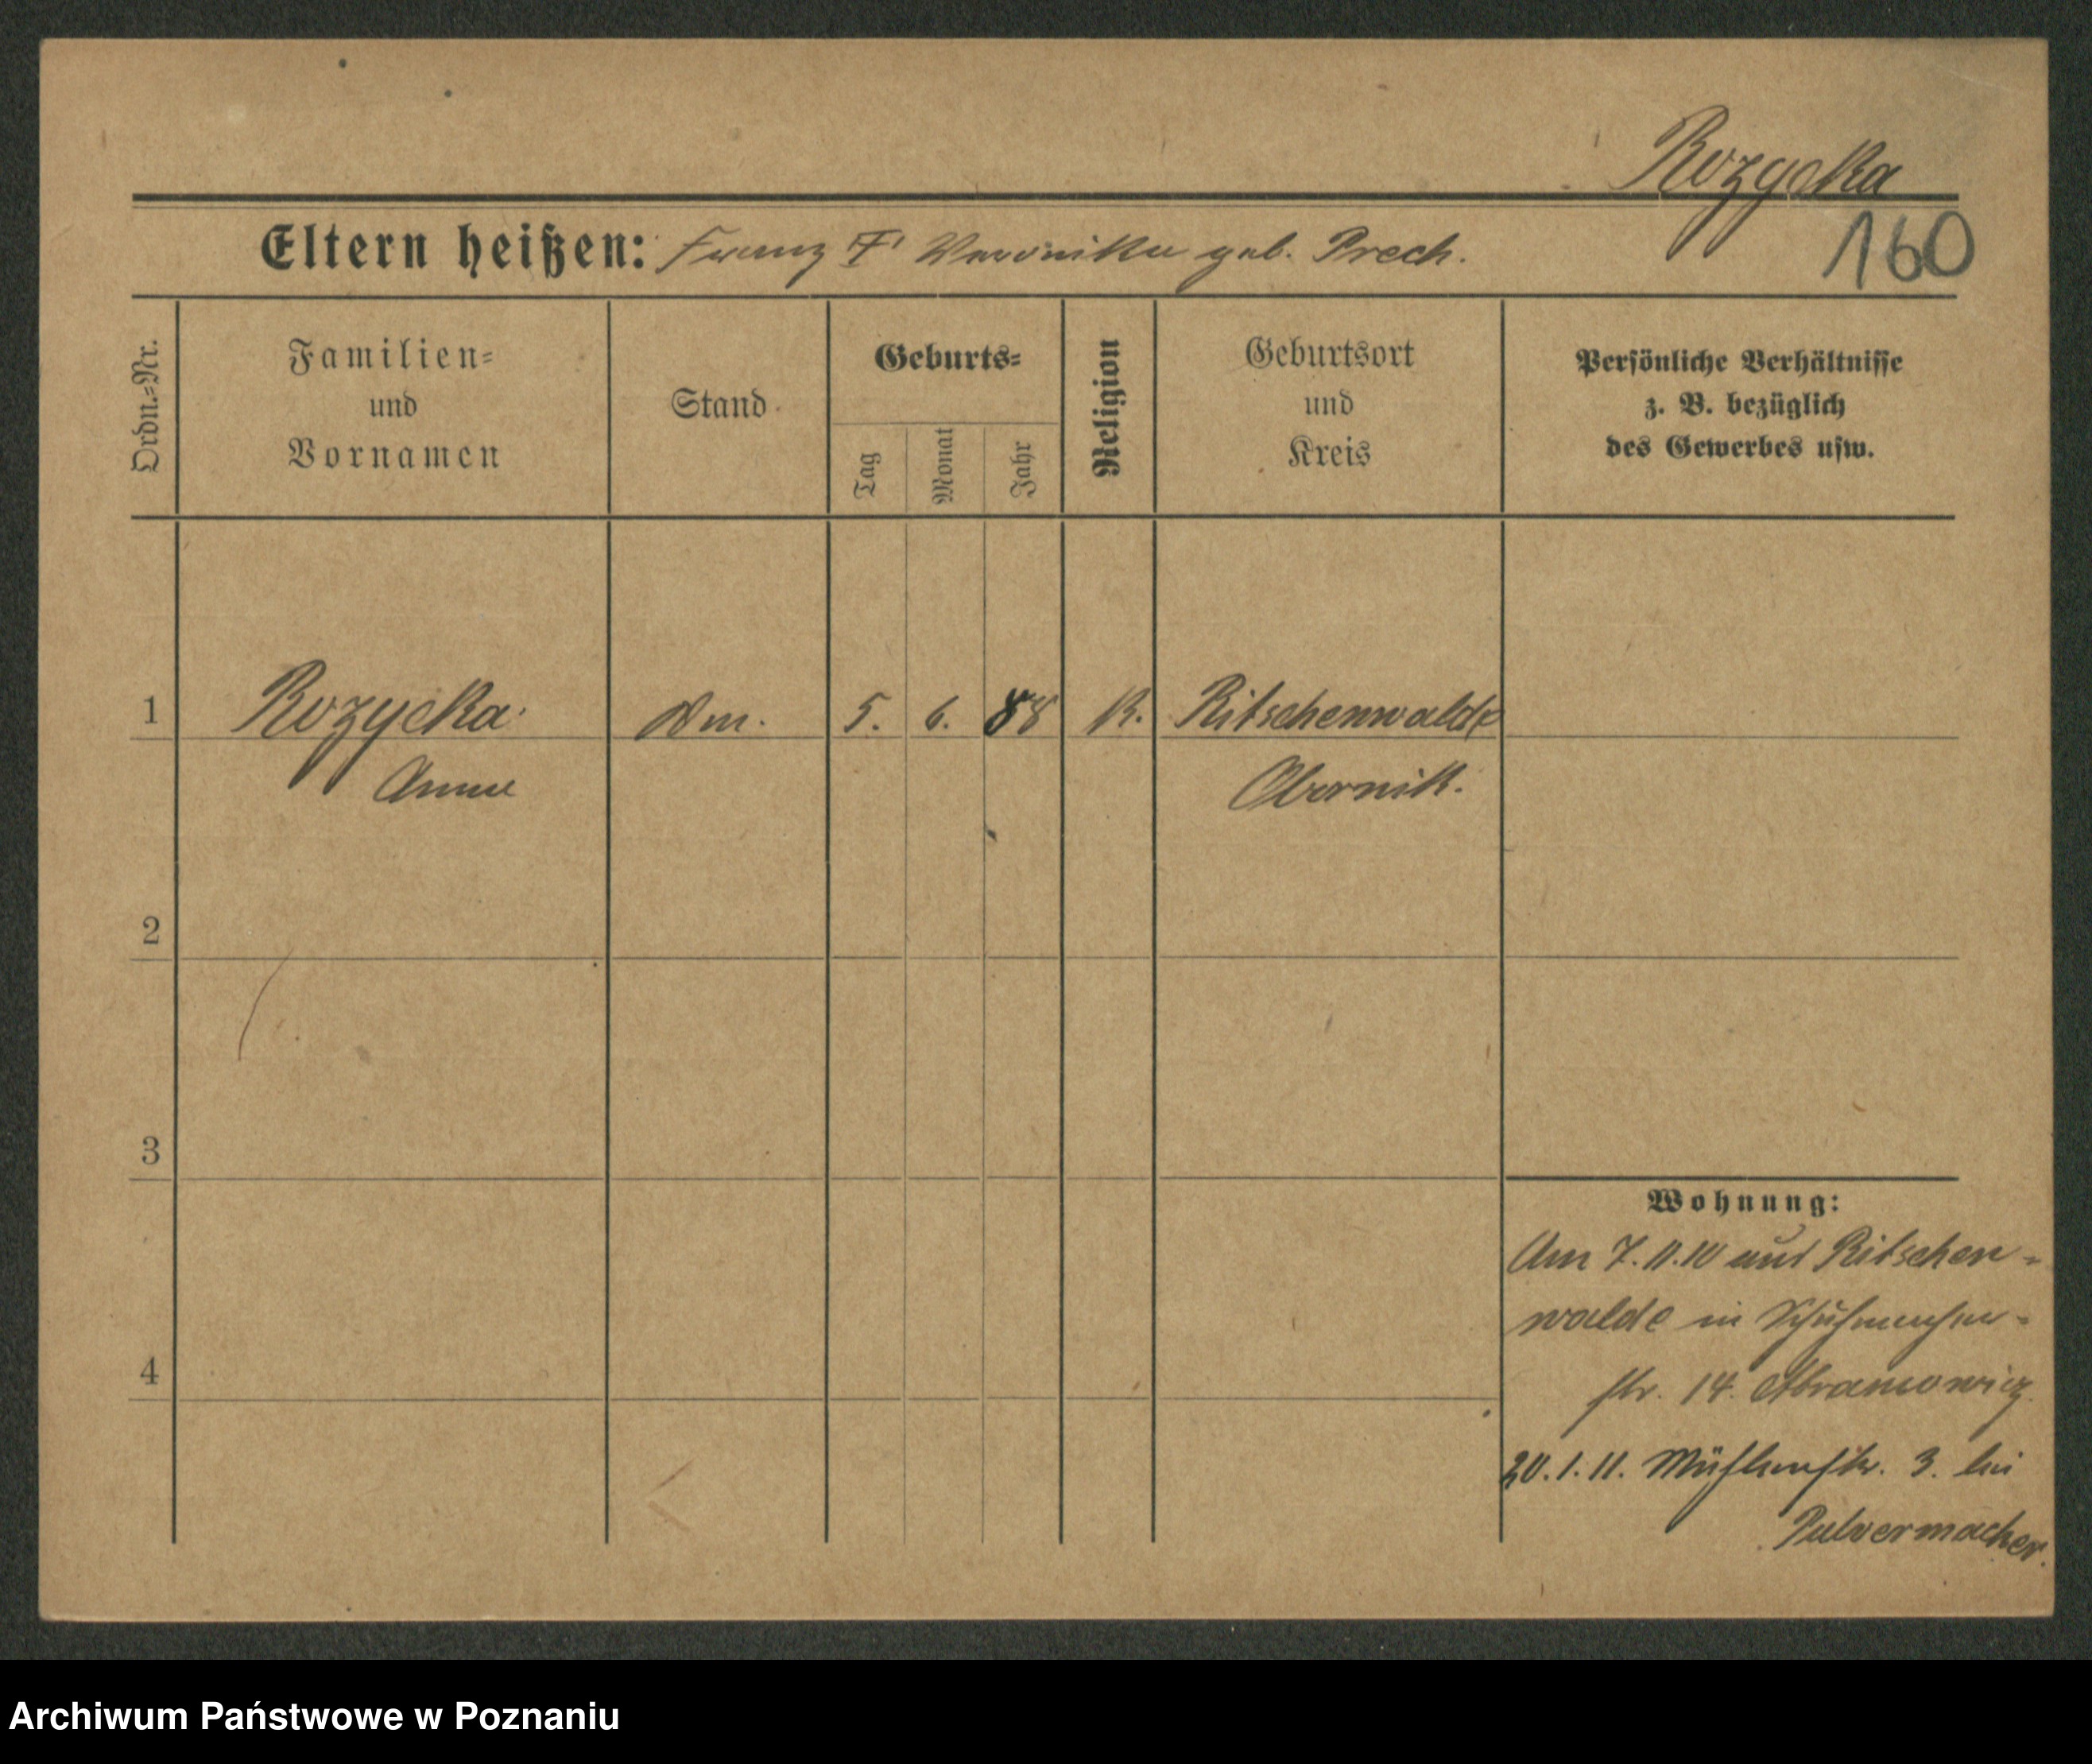 Rozycka
160
Eltern heißen: Franz † Veronika geb. Prech.
Ordn.=Nr.
Familien=
und
Vornamen
Stand
Geburts=
Tag
Monat
Jahr
Religion
Geburtsort
und
Kreis
Persönliche Verhältnisse
z. B. bezüglich
des Gewerbes usw.
1 Rozycka 5. 6. 88 K. Ritschenwalde
Anna Obornik.
2
3
4
Wohnung:
Am 7.11.10 aus Ritschen-
walde in Schuhmacher-
str. 14. Abramowicz
20.1.11. Mühlenstr. 3. bei
Pulvermacher.
Archiwum Państwowe w Poznaniu